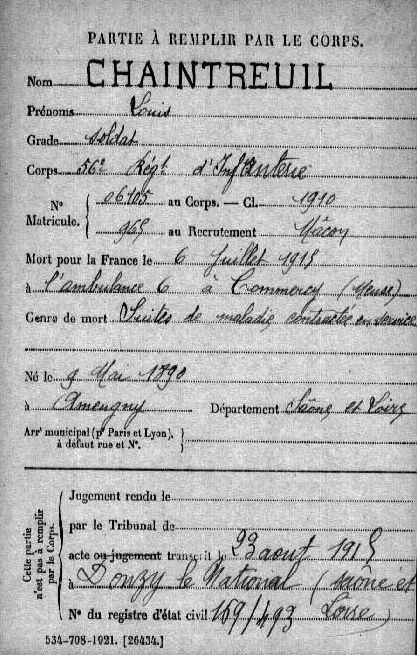 PARTIE À REMPLIR PAR LE CORPS.
Nom CHAINTREUIL
Prénoms Louis
Grade soldat
Corps 56e Régt d'Infanterie
N° Matricule. { 06105 au Corps. — Cl. 1910
965 au Recrutement Mâcon
Mort pour la France le 6 Juillet 1915
à l'ambulance 6 à Commercy (Meuse)
Genre de mort Suites de maladie contractée en service
Né le 9 Mai 1890
à Ameugny Département Saône et Loire
Arrt municipal (pr Paris et Lyon), à défaut rue et N°.
Cette partie n'est pas à remplir par le Corps.
Jugement rendu le
par le Tribunal de
acte ou jugement transcrit le 23 août 1915
à Donzy le National (Saône et
N° du registre d'état civil 169/493 Loire)
534-708-1921. [26434.]